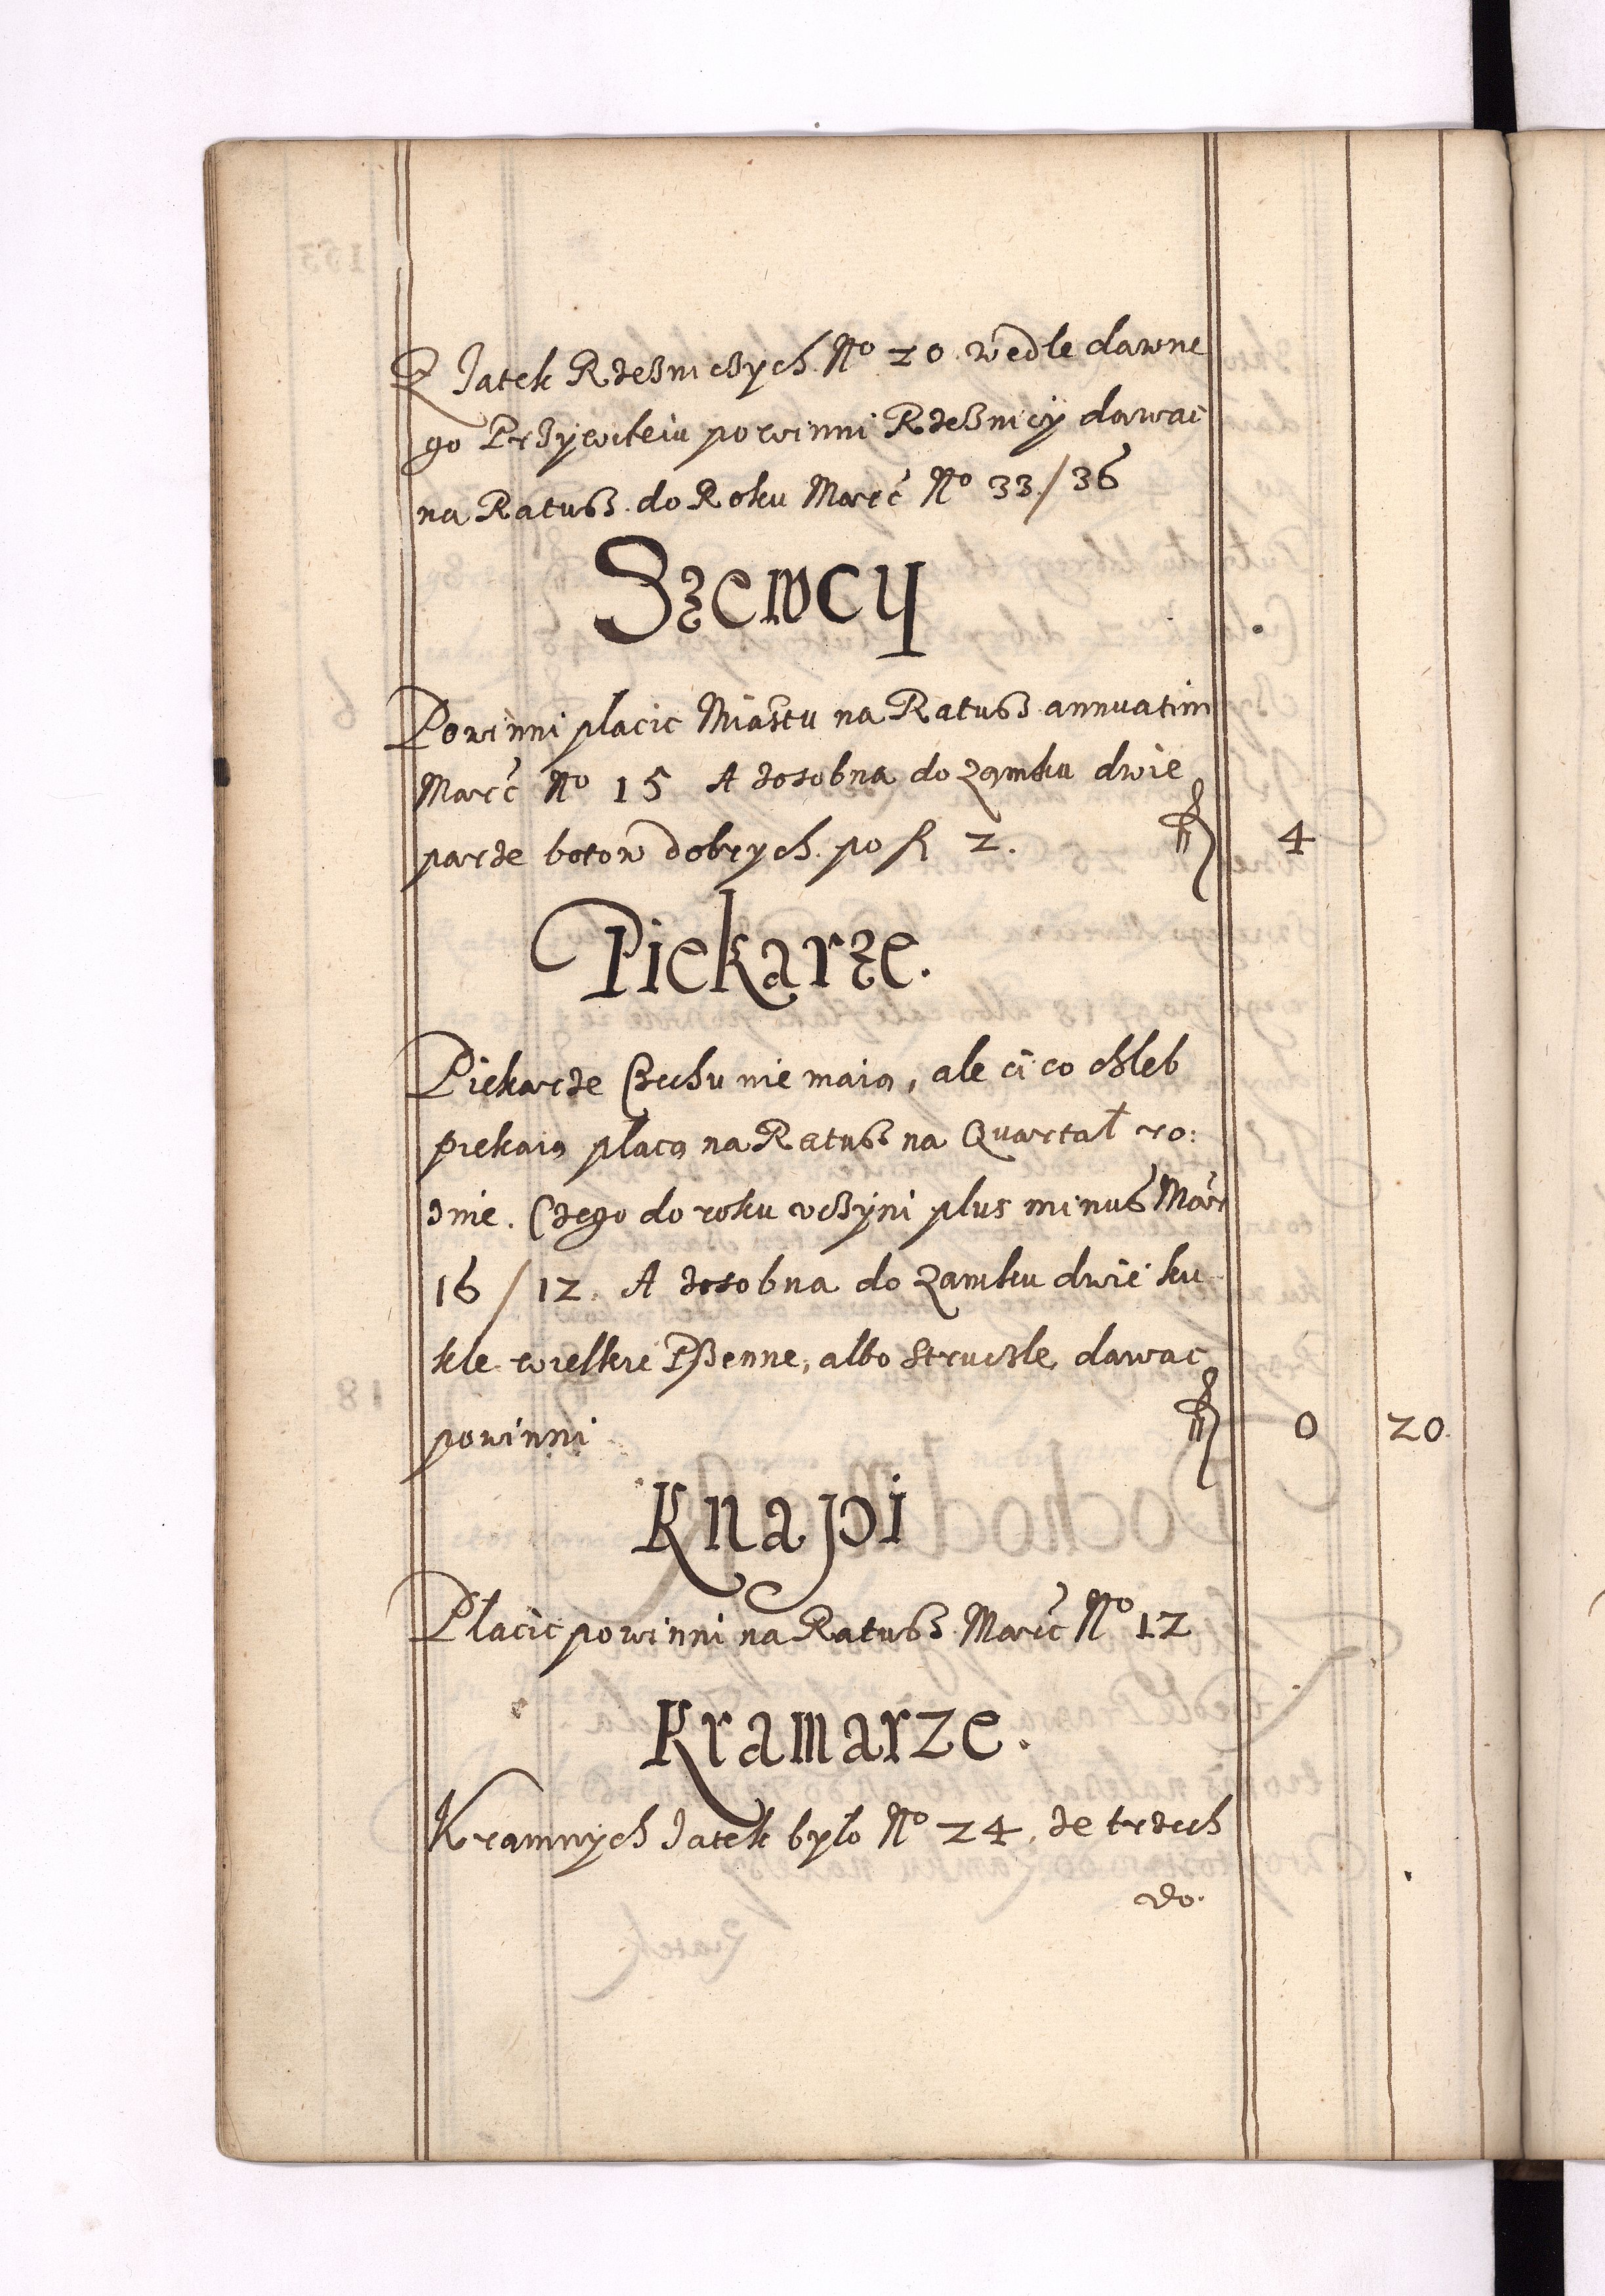 Z Jatek Rzeßniczych No 20 wedle dawne
go Przywileiu powinni Rzeßnicy dawać
na Ratusz do Roku Marc No 33/36
Szewcy
Powinni placic Miastu na Ratusz annuatim
Marc No 15 A zosobna do Zamku dwie
parze botow dobrych po fl 2. fl 4
Piekarze.
Piekarze Czechu nie maią, ale ci co chleb
piekaią placą na Ratusz na Quartal ro:
znie. Czego do roku uczyni plus minus Mar
16/12. A zosobna do Zamku dwie ku
kle wielkie Pßenne, albo Struczle, dawac
powinni fl 0 20.
Knapi
Placic powinni na Ratusz Marc No 12
Kramarze.
Kramnych Jatek bylo No 24, ze trzech
do.